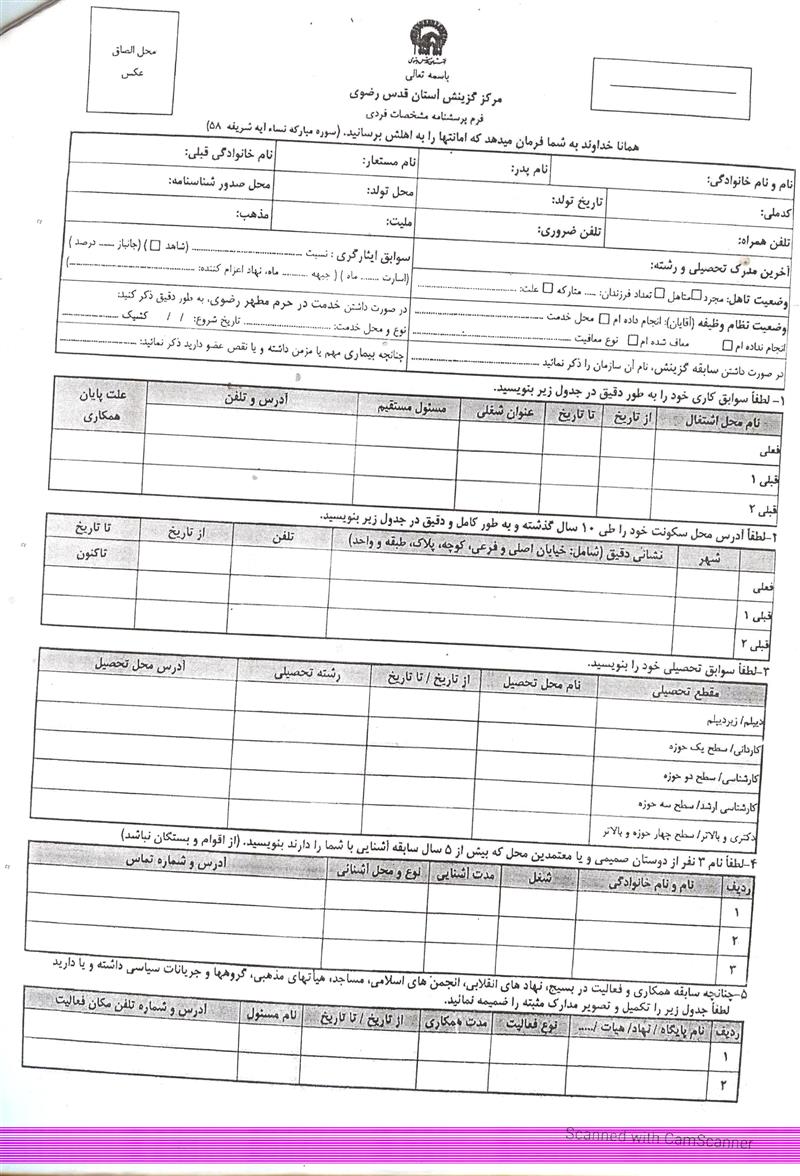 محل الصاق
عکس
باسمه تعالی
مرکز گزینش آستان قدس رضوی
فرم پرسشنامه مشخصات فردی
همانا خداوند به شما فرمان میدهد که امانتها را به اهلش برسانید. (سوره مبارکه نساء آیه شریفه ۵۸)
نام و نام خانوادگی: نام پدر: نام مستعار: نام خانوادگی قبلی:
کدملی: تاریخ تولد: محل تولد: محل صدور شناسنامه:
تلفن همراه: تلفن ضروری: ملیت: مذهب:
آخرین مدرک تحصیلی و رشته:
وضعیت تاهل: مجرد □ متاهل □ تعداد فرزندان: ..... متارکه □ علت: ..........
وضعیت نظام وظیفه (آقایان): انجام داده ام □ محل خدمت ..........
انجام نداده ام □ معاف شده ام □ نوع معافیت ..........
در صورت داشتن سابقه گزینش، نام آن سازمان را ذکر نمائید ..........
سوابق ایثارگری : نسبت .......... (شاهد □ ) (جانباز ..... درصد )
(اسارت ....... ماه ) ( جبهه ......... ماه، نهاد اعزام کننده: ..........)
در صورت داشتن خدمت در حرم مطهر رضوی، به طور دقیق ذکر کنید:
نوع و محل خدمت: .......... تاریخ شروع: / / کشیک ..........
چنانچه بیماری مهم یا مزمن داشته و یا نقص عضو دارید ذکر نمائید: ..........
۱- لطفاً سوابق کاری خود را به طور دقیق در جدول زیر بنویسید.
نام محل اشتغال از تاریخ تا تاریخ عنوان شغلی مسئول مستقیم آدرس و تلفن علت پایان همکاری
فعلی
قبلی ۱
قبلی ۲
۲-لطفاً آدرس محل سکونت خود را طی ۱۰ سال گذشته و به طور کامل و دقیق در جدول زیر بنویسید.
شهر نشانی دقیق (شامل: خیابان اصلی و فرعی، کوچه، پلاک، طبقه و واحد) تلفن از تاریخ تا تاریخ
فعلی تاکنون
قبلی ۱
قبلی ۲
۳-لطفاً سوابق تحصیلی خود را بنویسید.
مقطع تحصیلی نام محل تحصیل از تاریخ / تا تاریخ رشته تحصیلی آدرس محل تحصیل
دیپلم/ زیردیپلم
کاردانی/ سطح یک حوزه
کارشناسی/ سطح دو حوزه
کارشناسی ارشد/ سطح سه حوزه
دکتری و بالاتر/ سطح چهار حوزه و بالاتر
۴-لطفاً نام ۳ نفر از دوستان صمیمی و یا معتمدین محل که بیش از ۵ سال سابقه آشنایی با شما را دارند بنویسید. (از اقوام و بستگان نباشد)
ردیف نام و نام خانوادگی شغل مدت آشنایی نوع و محل آشنائی آدرس و شماره تماس
۱
۲
۳
۵-چنانچه سابقه همکاری و فعالیت در بسیج، نهاد های انقلابی، انجمن های اسلامی، مساجد، هیأتهای مذهبی، گروهها و جریانات سیاسی داشته و یا دارید
لطفاً جدول زیر را تکمیل و تصویر مدارک مثبته را ضمیمه نمائید.
ردیف نام پایگاه / نهاد/ هیات /..... نوع فعالیت مدت همکاری از تاریخ / تا تاریخ نام مسئول آدرس و شماره تلفن مکان فعالیت
۱
۲
Scanned with CamScanner